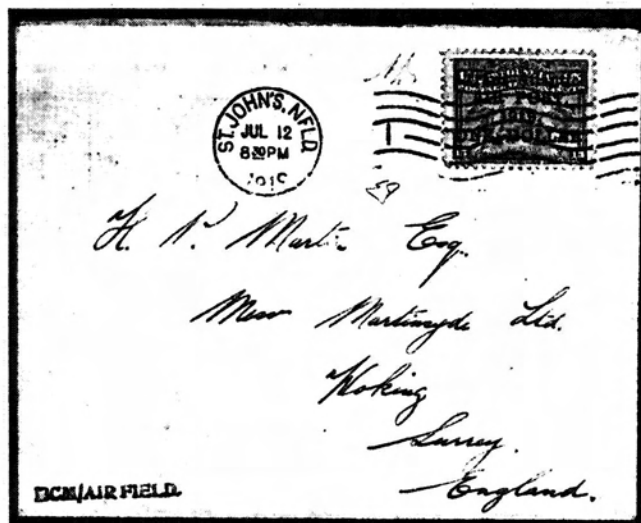 ST. JOHN'S, NFLD.
JUL 12
8 30 PM
1919
1919
ONE DOLLAR
H. P. Martin Esq.
Mess Martinsyde Ltd.
Woking
Surrey.
England.
DCM/AIR FIELD.